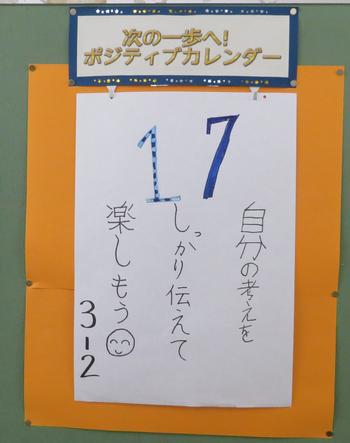 次の一歩へ!
ポジティブカレンダー
17
自分の考えを
しっかり伝えて
楽しもう
3-2